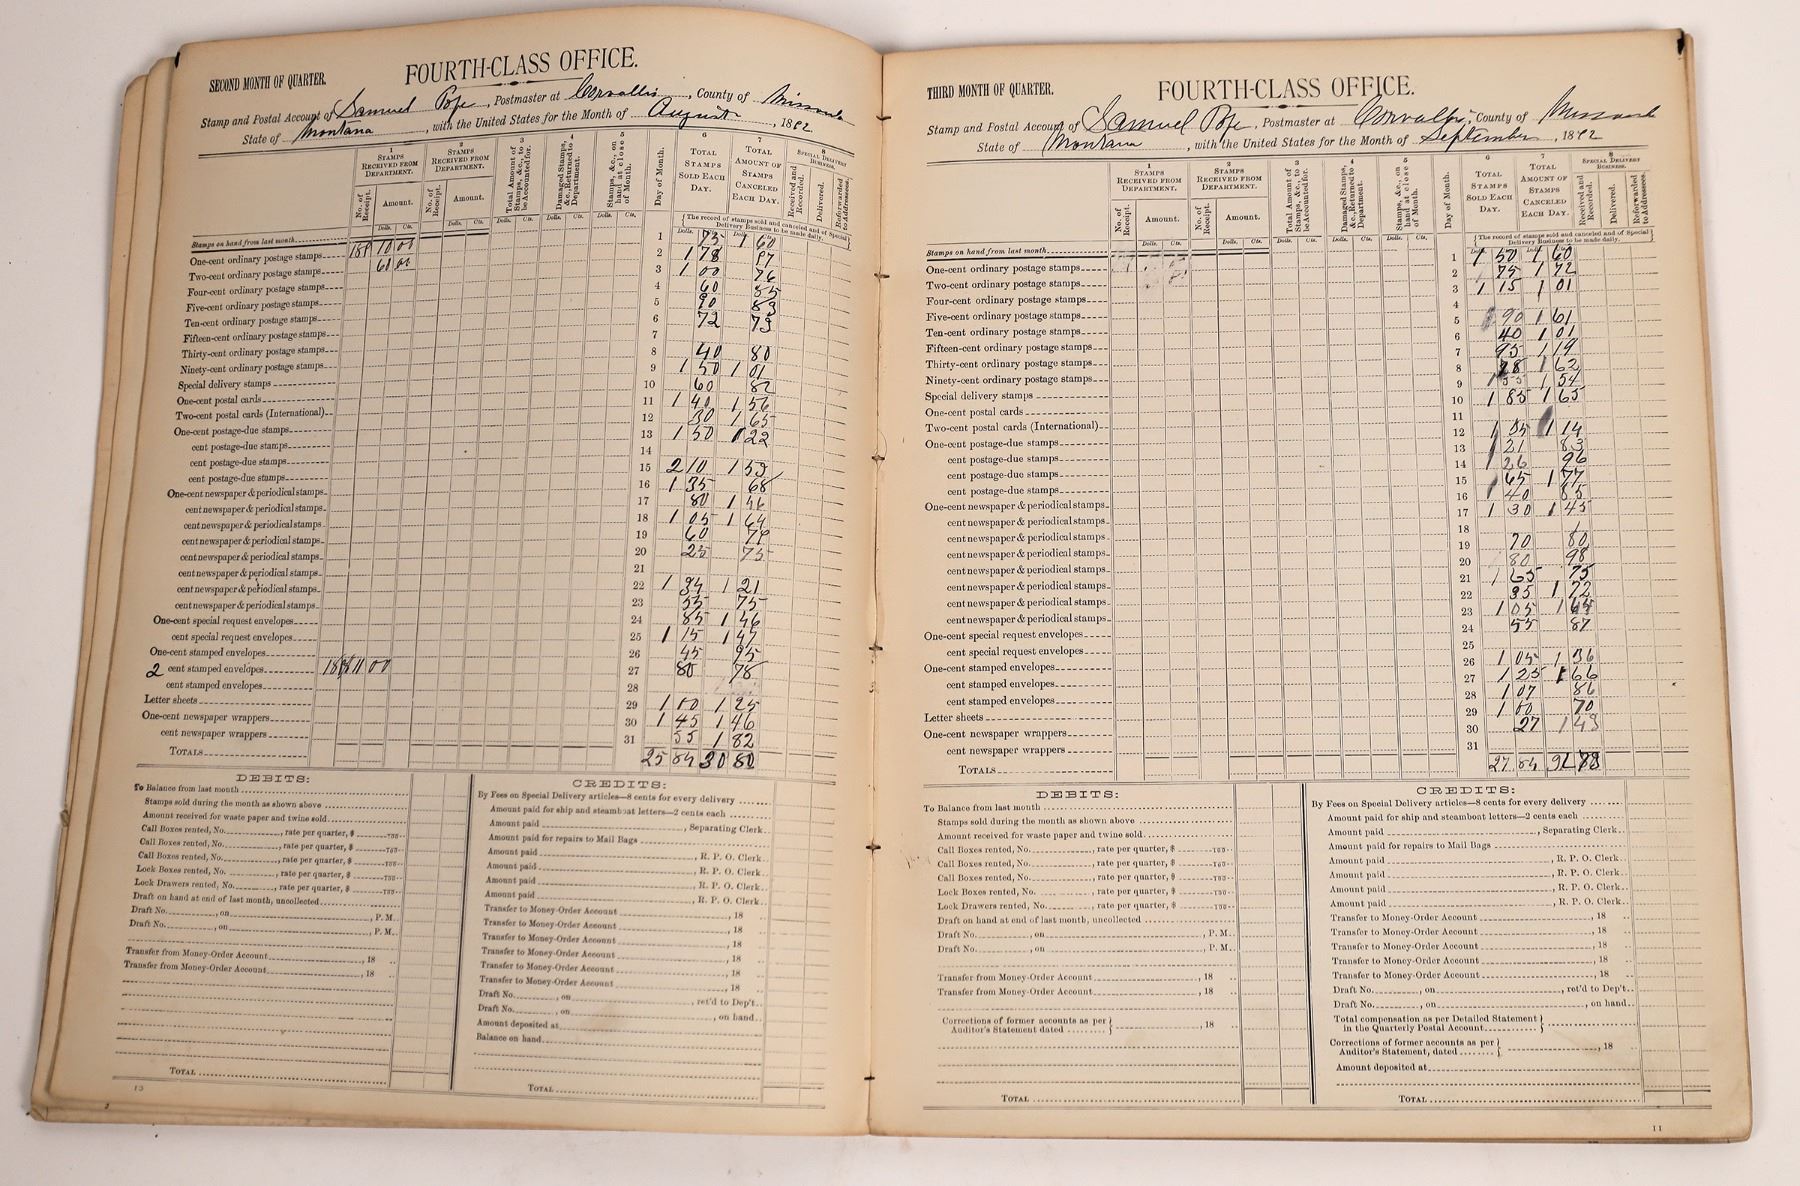 SECOND MONTH OF QUARTER.
FOURTH-CLASS OFFICE.
Stamp and Postal Account of Samuel Pope, Postmaster at Corvallis, County of Missoula
State of Montana, with the United States for the Month of August, 1892
1 STAMPS RECEIVED FROM DEPARTMENT.
No. of Receipt. Amount. Dolls. Cts.
2 STAMPS RECEIVED FROM DEPARTMENT.
No. of Receipt. Amount.
3 Total Amount of Stamps, &c., to be Accounted for. Dolls. Cts.
4 Damaged Stamps, &c., Returned to Department. Dolls. Cts.
5 Stamps, &c., on hand at close of Month. Dolls. Cts.
Day of Month.
6 TOTAL STAMPS SOLD EACH DAY.
7 TOTAL AMOUNT OF STAMPS CANCELED EACH DAY.
8 SPECIAL DELIVERY BUSINESS.
Received and Recorded. Delivered. Reforwarded to Addressees.
{The record of stamps sold and canceled and of Special Delivery Business to be made daily.}
Stamps on hand from last month
One-cent ordinary postage stamps 10 00
Two-cent ordinary postage stamps 60 00
Four-cent ordinary postage stamps
Five-cent ordinary postage stamps
Ten-cent ordinary postage stamps
Fifteen-cent ordinary postage stamps
Thirty-cent ordinary postage stamps
Ninety-cent ordinary postage stamps
Special delivery stamps
One-cent postal cards
Two-cent postal cards (International)
One-cent postage-due stamps
cent postage-due stamps
cent postage-due stamps
cent postage-due stamps
One-cent newspaper & periodical stamps
cent newspaper & periodical stamps
cent newspaper & periodical stamps
cent newspaper & periodical stamps
cent newspaper & periodical stamps
cent newspaper & periodical stamps
cent newspaper & periodical stamps
cent newspaper & periodical stamps
One-cent special request envelopes
cent special request envelopes
One-cent stamped envelopes
2 cent stamped envelopes 11 00
cent stamped envelopes
Letter sheets
One-cent newspaper wrappers
cent newspaper wrappers
TOTALS
1 75 1 60
2 1 78 97
3 1 00 76
4 60 85
5 90 83
6 72 73
7
8 40 80
9 1 50 1 01
10 60 82
11 1 40 1 56
12 30 1 65
13 1 50 1 22
14
15 2 10 1 53
16 1 35 68
17 80 1 46
18 1 05 1 64
19 60 79
20 25 75
21
22 1 34 1 21
23 55 75
24 85 1 46
25 1 15 1 47
26 45 95
27 80 78
28
29 1 00 1 25
30 1 45 1 46
31 55 1 82
25 84 30 80
DEBITS:
To Balance from last month
Stamps sold during the month as shown above
Amount received for waste paper and twine sold
Call Boxes rented, No. , rate per quarter, $
Call Boxes rented, No. , rate per quarter, $
Call Boxes rented, No. , rate per quarter, $
Lock Boxes rented, No. , rate per quarter, $
Lock Drawers rented, No. , rate per quarter, $
Draft on hand at end of last month, uncollected
Draft No. , on , P. M.
Draft No. , on , P. M.
Transfer from Money-Order Account , 18
Transfer from Money-Order Account , 18
TOTAL
CREDITS:
By Fees on Special Delivery articles—8 cents for every delivery
Amount paid for ship and steamboat letters—2 cents each
Amount paid , Separating Clerk
Amount paid for repairs to Mail Bags
Amount paid , R. P. O. Clerk
Amount paid , R. P. O. Clerk
Amount paid , R. P. O. Clerk
Amount paid , R. P. O. Clerk
Transfer to Money-Order Account , 18
Transfer to Money-Order Account , 18
Transfer to Money-Order Account , 18
Transfer to Money-Order Account , 18
Transfer to Money-Order Account , 18
Transfer to Money-Order Account , 18
Draft No. , on , ret'd to Dep't
Draft No. , on , on hand
Amount deposited at
Balance on hand
TOTAL
THIRD MONTH OF QUARTER.
FOURTH-CLASS OFFICE.
Stamp and Postal Account of Samuel Pope, Postmaster at Corvallis, County of Missoula
State of Montana, with the United States for the Month of September, 1892
1 STAMPS RECEIVED FROM DEPARTMENT.
No. of Receipt. Amount. Dolls. Cts.
2 STAMPS RECEIVED FROM DEPARTMENT.
No. of Receipt. Amount. Dolls. Cts.
3 Total Amount of Stamps, &c., to be Accounted for. Dolls. Cts.
4 Damaged Stamps, &c., Returned to Department. Dolls. Cts.
5 Stamps, &c., on hand at close of Month. Dolls. Cts.
Day of Month.
6 TOTAL STAMPS SOLD EACH DAY.
7 TOTAL AMOUNT OF STAMPS CANCELED EACH DAY.
8 SPECIAL DELIVERY BUSINESS.
Received and Recorded. Delivered. Reforwarded to Addressees.
{The record of stamps sold and canceled and of Special Delivery Business to be made daily.}
Stamps on hand from last month
One-cent ordinary postage stamps
Two-cent ordinary postage stamps
Four-cent ordinary postage stamps
Five-cent ordinary postage stamps
Ten-cent ordinary postage stamps
Fifteen-cent ordinary postage stamps
Thirty-cent ordinary postage stamps
Ninety-cent ordinary postage stamps
Special delivery stamps
One-cent postal cards
Two-cent postal cards (International)
One-cent postage-due stamps
cent postage-due stamps
cent postage-due stamps
cent postage-due stamps
One-cent newspaper & periodical stamps
cent newspaper & periodical stamps
cent newspaper & periodical stamps
cent newspaper & periodical stamps
cent newspaper & periodical stamps
cent newspaper & periodical stamps
cent newspaper & periodical stamps
cent newspaper & periodical stamps
One-cent special request envelopes
cent special request envelopes
One-cent stamped envelopes
cent stamped envelopes
cent stamped envelopes
Letter sheets
One-cent newspaper wrappers
cent newspaper wrappers
TOTALS
1 1 50 1 60
2 75 1 72
3 1 15 1 01
4
5 90 1 61
6 40 1 01
7 95 1 19
8 1 62
9 1 55 1 54
10 1 85 1 65
11
12 1 05 1 14
13 1 21 83
14 1 26 96
15 1 65 1 77
16 1 40 85
17 1 30 1 45
18
19 70 80
20 80 98
21 1 65 75
22 35 1 72
23 1 05 1
24 55 87
25
26 1 05 1 36
27 1 25 1 66
28 1 07 86
29 1 00 70
30 27 1 43
31
27 84
DEBITS:
To Balance from last month
Stamps sold during the month as shown above
Amount received for waste paper and twine sold
Call Boxes rented, No. , rate per quarter, $
Call Boxes rented, No. , rate per quarter, $
Call Boxes rented, No. , rate per quarter, $
Lock Boxes rented, No. , rate per quarter, $
Lock Drawers rented, No. , rate per quarter, $
Draft on hand at end of last month, uncollected
Draft No. , on , P. M.
Draft No. , on , P. M.
Transfer from Money-Order Account , 18
Transfer from Money-Order Account , 18
Corrections of former accounts as per Auditor's Statement dated , 18
TOTAL
CREDITS:
By Fees on Special Delivery articles—8 cents for every delivery
Amount paid for ship and steamboat letters—2 cents each
Amount paid , Separating Clerk
Amount paid for repairs to Mail Bags
Amount paid , R. P. O. Clerk
Amount paid , R. P. O. Clerk
Amount paid , R. P. O. Clerk
Amount paid , R. P. O. Clerk
Transfer to Money-Order Account , 18
Transfer to Money-Order Account , 18
Transfer to Money-Order Account , 18
Transfer to Money-Order Account , 18
Transfer to Money-Order Account , 18
Draft No. , on , ret'd to Dep't
Draft No. , on , on hand
Total compensation as per Detailed Statement in the Quarterly Postal Account
Corrections of former accounts as per Auditor's Statement, dated , 18
Amount deposited at
TOTAL
11